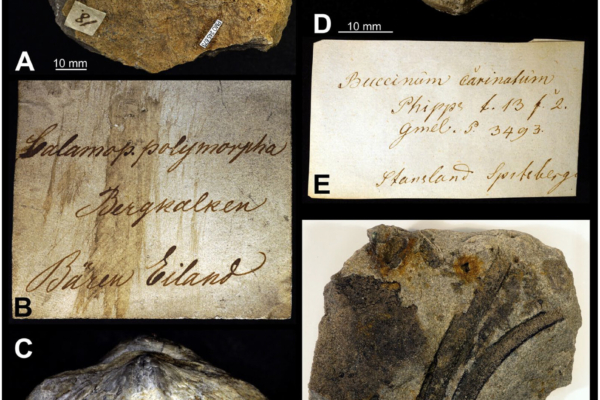 81
A
10 mm
Calamop. polymorpha
Bergkalken
Bären Eiland
B
C
D
10 mm
Buccinum carinatum
Phipps t. 13 f. 2.
Gmel. p. 3493.
Stansland Spitsberg.
E